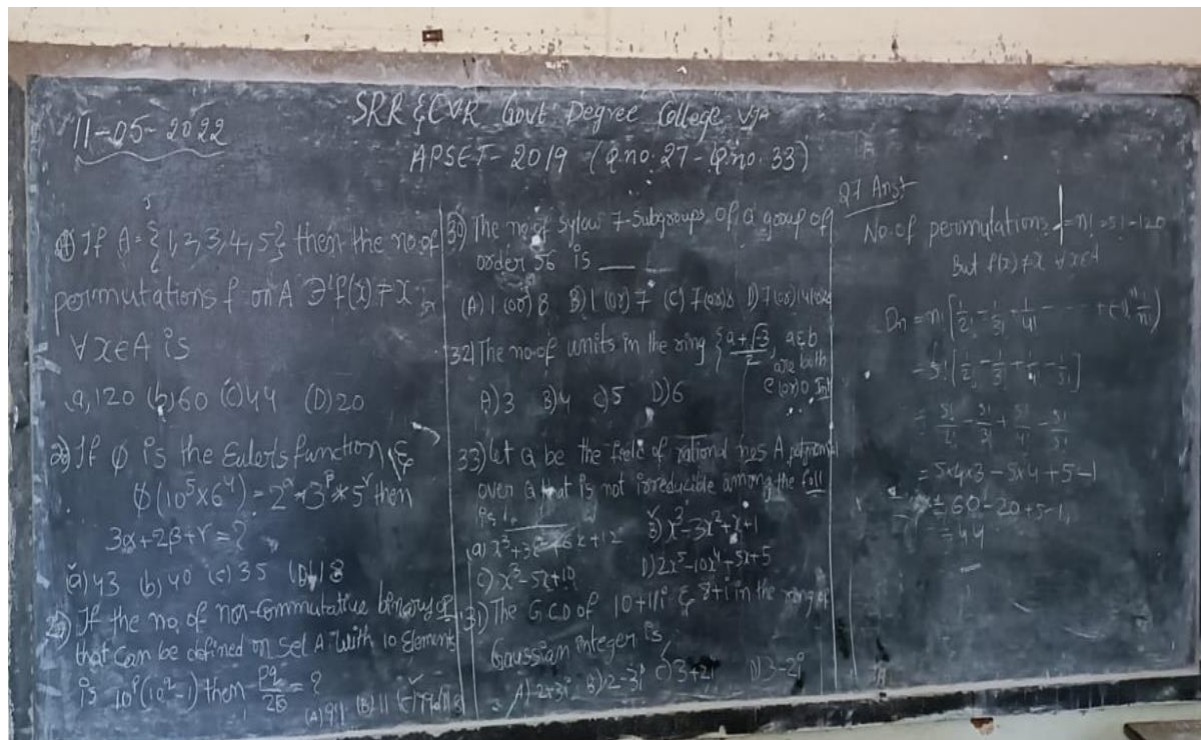 11-05-2022
SRR & CVR Govt Degree College VJA
APSET-2019 (Q.no. 27 - Q.no. 33)
If A = {1, 2, 3, 4, 5} then the no. of
permutations f on A ∋ f(x) ≠ x
∀ x ∈ A is
a, 120 (b) 60 (c) 44 (D) 20
28) If φ is the Euler's function &
φ(10⁵ × 6⁴) = 2^α * 3^β * 5^γ then
3α + 2β + γ = ?
(a) 43 (b) 40 (c) 35 (D) 18
29) If the no. of non-commutative binary op
that can be defined on Set A with 10 Elements
is 10^p (10^q - 1) then
30) The no. of Sylow 7-Subgroups of a group of
order 56 is
(A) 1 (or) 8 B) 1 (or) 7 (C) 7 (or) 8 D) 7 (or) 14
32) The no. of units in the ring { a + √-3 / 2, a & b
are both
e (or) o Int
A) 3 B) 4 C) 5 D) 6
33) Let Q be the field of rational nos A polynomial
over Q that is not irreducible among the foll
is
(a) x³ + 3x² + 6x + 12 B) x³ - 3x² + x + 1
C) x³ - 5x + 10 D) 2x⁵ - 10x⁴ + 5x + 5
31) The G.C.D of 10 + 11i & 8 + i in the ring of
Gaussian integer is
A) 2+3i B) 2-3i C) 3+2i D) 3-2i
27 Ans:
No. of permutations f = n! = 5! = 120
But f(x) ≠ x ∀ x ∈ A
Dn = n! [1/2! - 1/3! + 1/4! - - - + (-1)^n 1/n!]
= 5! [1/2! - 1/3! + 1/4! - 1/5!]
= 5!/2! - 5!/3! + 5!/4! - 5!/5!
= 5×4×3 - 5×4 + 5 - 1
= 60 - 20 + 5 - 1
= 44